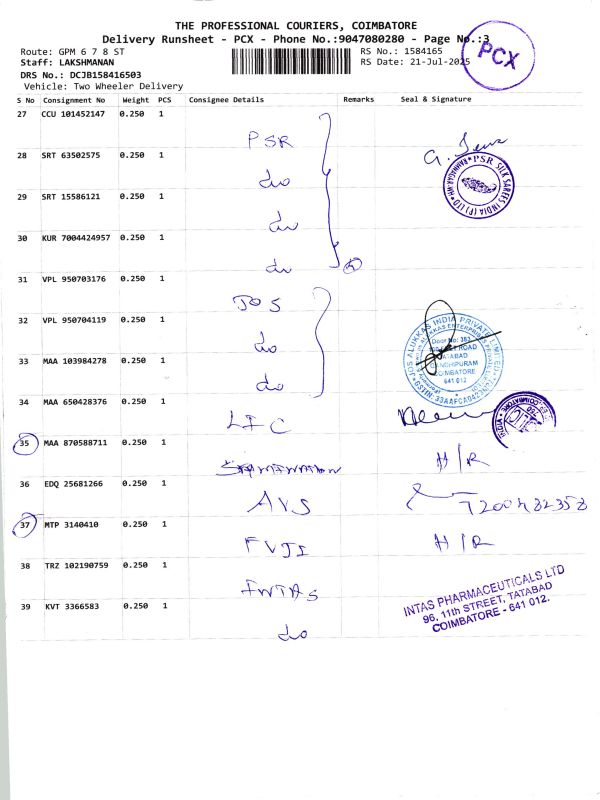 THE PROFESSIONAL COURIERS, COIMBATORE
Delivery Runsheet - PCX - Phone No.:9047080280 - Page No.:3
Route: GPM 6 7 8 ST
RS No.: 1584165
PCX
Staff: LAKSHMANAN
RS Date: 21-Jul-2025
DRS No.: DCJB158416503
Vehicle: Two Wheeler Delivery
S No Consignment No Weight PCS Consignee Details Remarks Seal & Signature
27 CCU 101452147 0.250 1 PSR
28 SRT 63502575 0.250 1 do
PSR SILK SAREES INDIA (P) LTD
29 SRT 15586121 0.250 1 do
30 KUR 7004424957 0.250 1 do 4
31 VPL 950703176 0.250 1 JOS
32 VPL 950704119 0.250 1 do
JOS ALUKKAS INDIA PRIVATE LIMITED
Door No: 383
TATABAD
COIMBATORE
641 012
33 MAA 103984278 0.250 1 do
34 MAA 650428376 0.250 1 LIC
35 MAA 870588711 0.250 1 H/R
36 EDQ 25681266 0.250 1 AVS
37 MTP 3140410 0.250 1 FVJI H/R
38 TRZ 102190759 0.250 1 INTAS
INTAS PHARMACEUTICALS LTD
96, 11th STREET, TATABAD
COIMBATORE - 641 012.
39 KVT 3366583 0.250 1 do